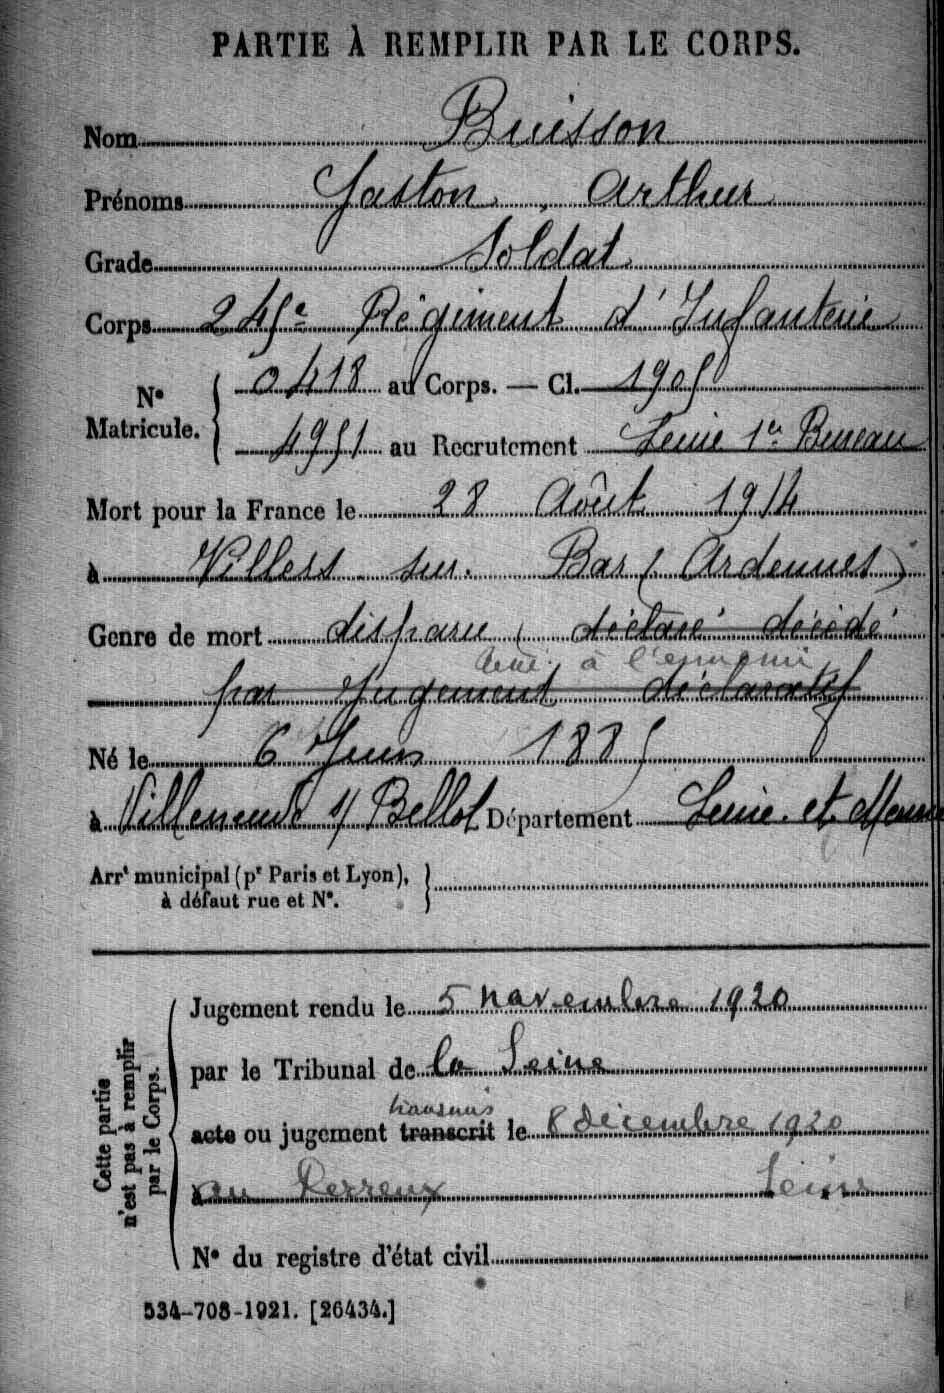 PARTIE À REMPLIR PAR LE CORPS.
Nom Buisson
Prénoms Gaston, Arthur
Grade Soldat
Corps 245e Régiment d'Infanterie
N° Matricule. { 0418 au Corps. — Cl. 1905
4951 au Recrutement Seine 1er Bureau
Mort pour la France le 28 Août 1914
à Villers sur Bar (Ardennes)
Genre de mort disparu, déclaré décédé
à l'ennemi
par Jugement déclaratif
Né le 6 Juin 1885
à Villeneuve s/ Bellot Département Seine et Marne
Arrt municipal (pr Paris et Lyon), }
à défaut rue et N°.
Cette partie
n'est pas à remplir
par le Corps.
Jugement rendu le 5 novembre 1920
par le Tribunal de la Seine
transmis
acte ou jugement transcrit le 8 décembre 1920
au Perreux Seine
N° du registre d'état civil
534-708-1921. [26434.]